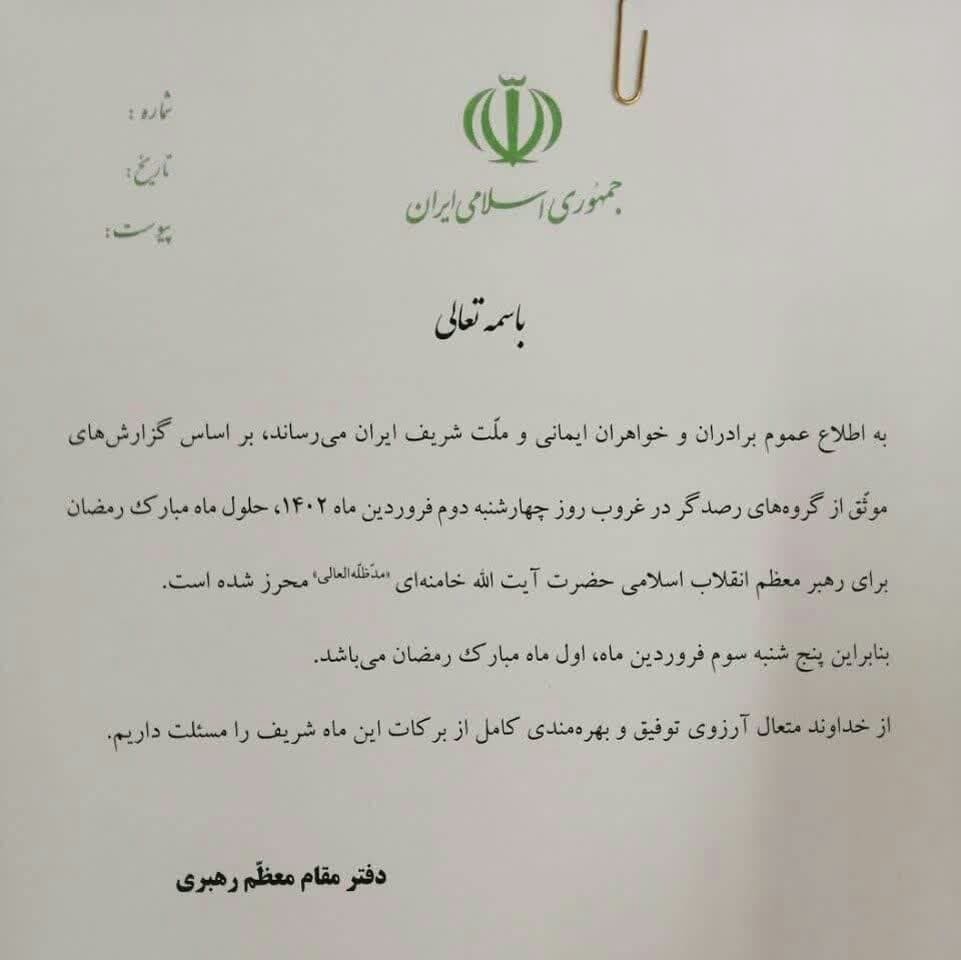 جمهوری اسلامی ایران
شماره :
تاریخ:
پیوست:
باسمه تعالی
به اطلاع عموم برادران و خواهران ایمانی و ملّت شریف ایران می‌رساند، بر اساس گزارش‌های
موثّق از گروه‌های رصدگر در غروب روز چهارشنبه دوم فروردین ماه ۱۴۰۲، حلول ماه مبارک رمضان
برای رهبر معظم انقلاب اسلامی حضرت آیت الله خامنه‌ای «مدّظلّه‌العالی» محرز شده است.
بنابراین پنج شنبه سوم فروردین ماه، اول ماه مبارک رمضان می‌باشد.
از خداوند متعال آرزوی توفیق و بهره‌مندی کامل از برکات این ماه شریف را مسئلت داریم.
دفتر مقام معظّم رهبری